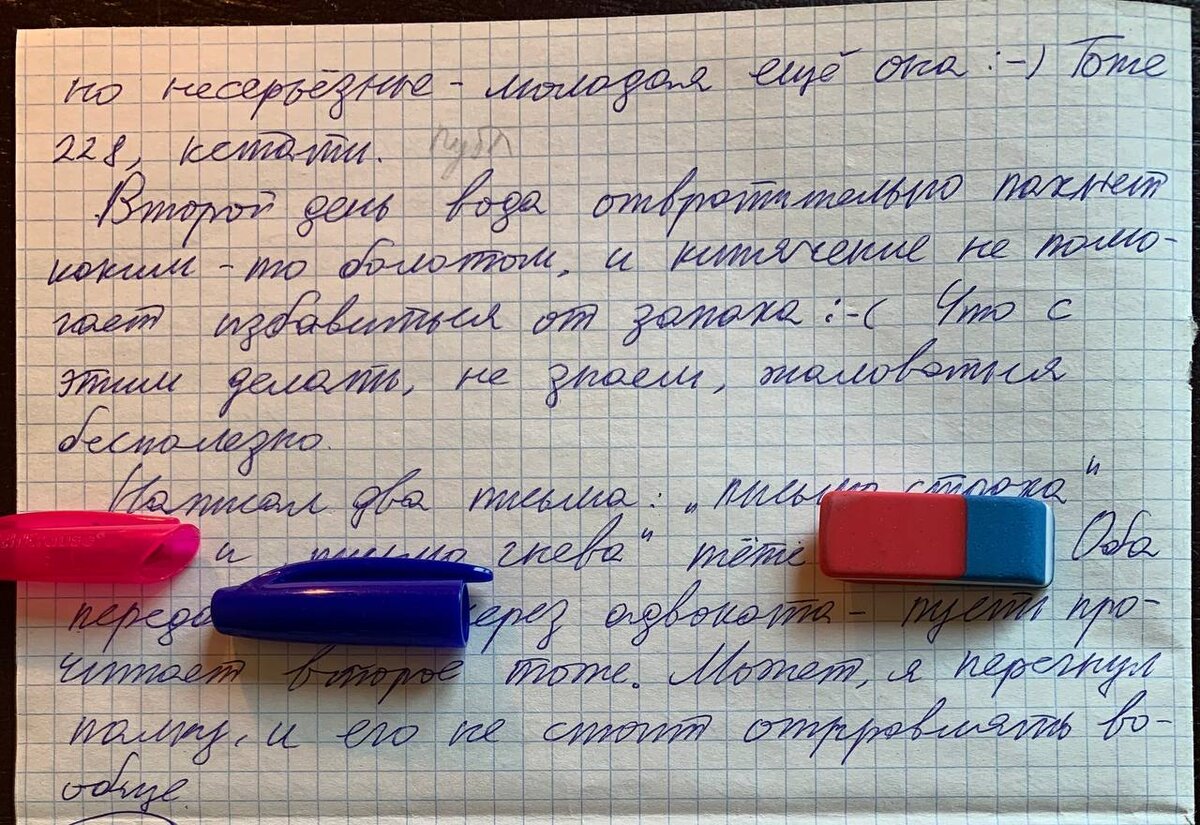 но несерьёзные - молодая ещё она :-) Тоже
228, кстати.
Второй день вода отвратительно пахнет
каким-то болотом, и кипячение не помо-
гает избавиться от запаха :-( Что с
этим делать, не знаем, жаловаться
бесполезно.
Написал два письма: „письмо страха"
и „письмо гнева" тёте Оба
через адвоката - пусть про-
читает второе тоже. Может, я перегнул
палку, и его не стоит отправлять во-
обще